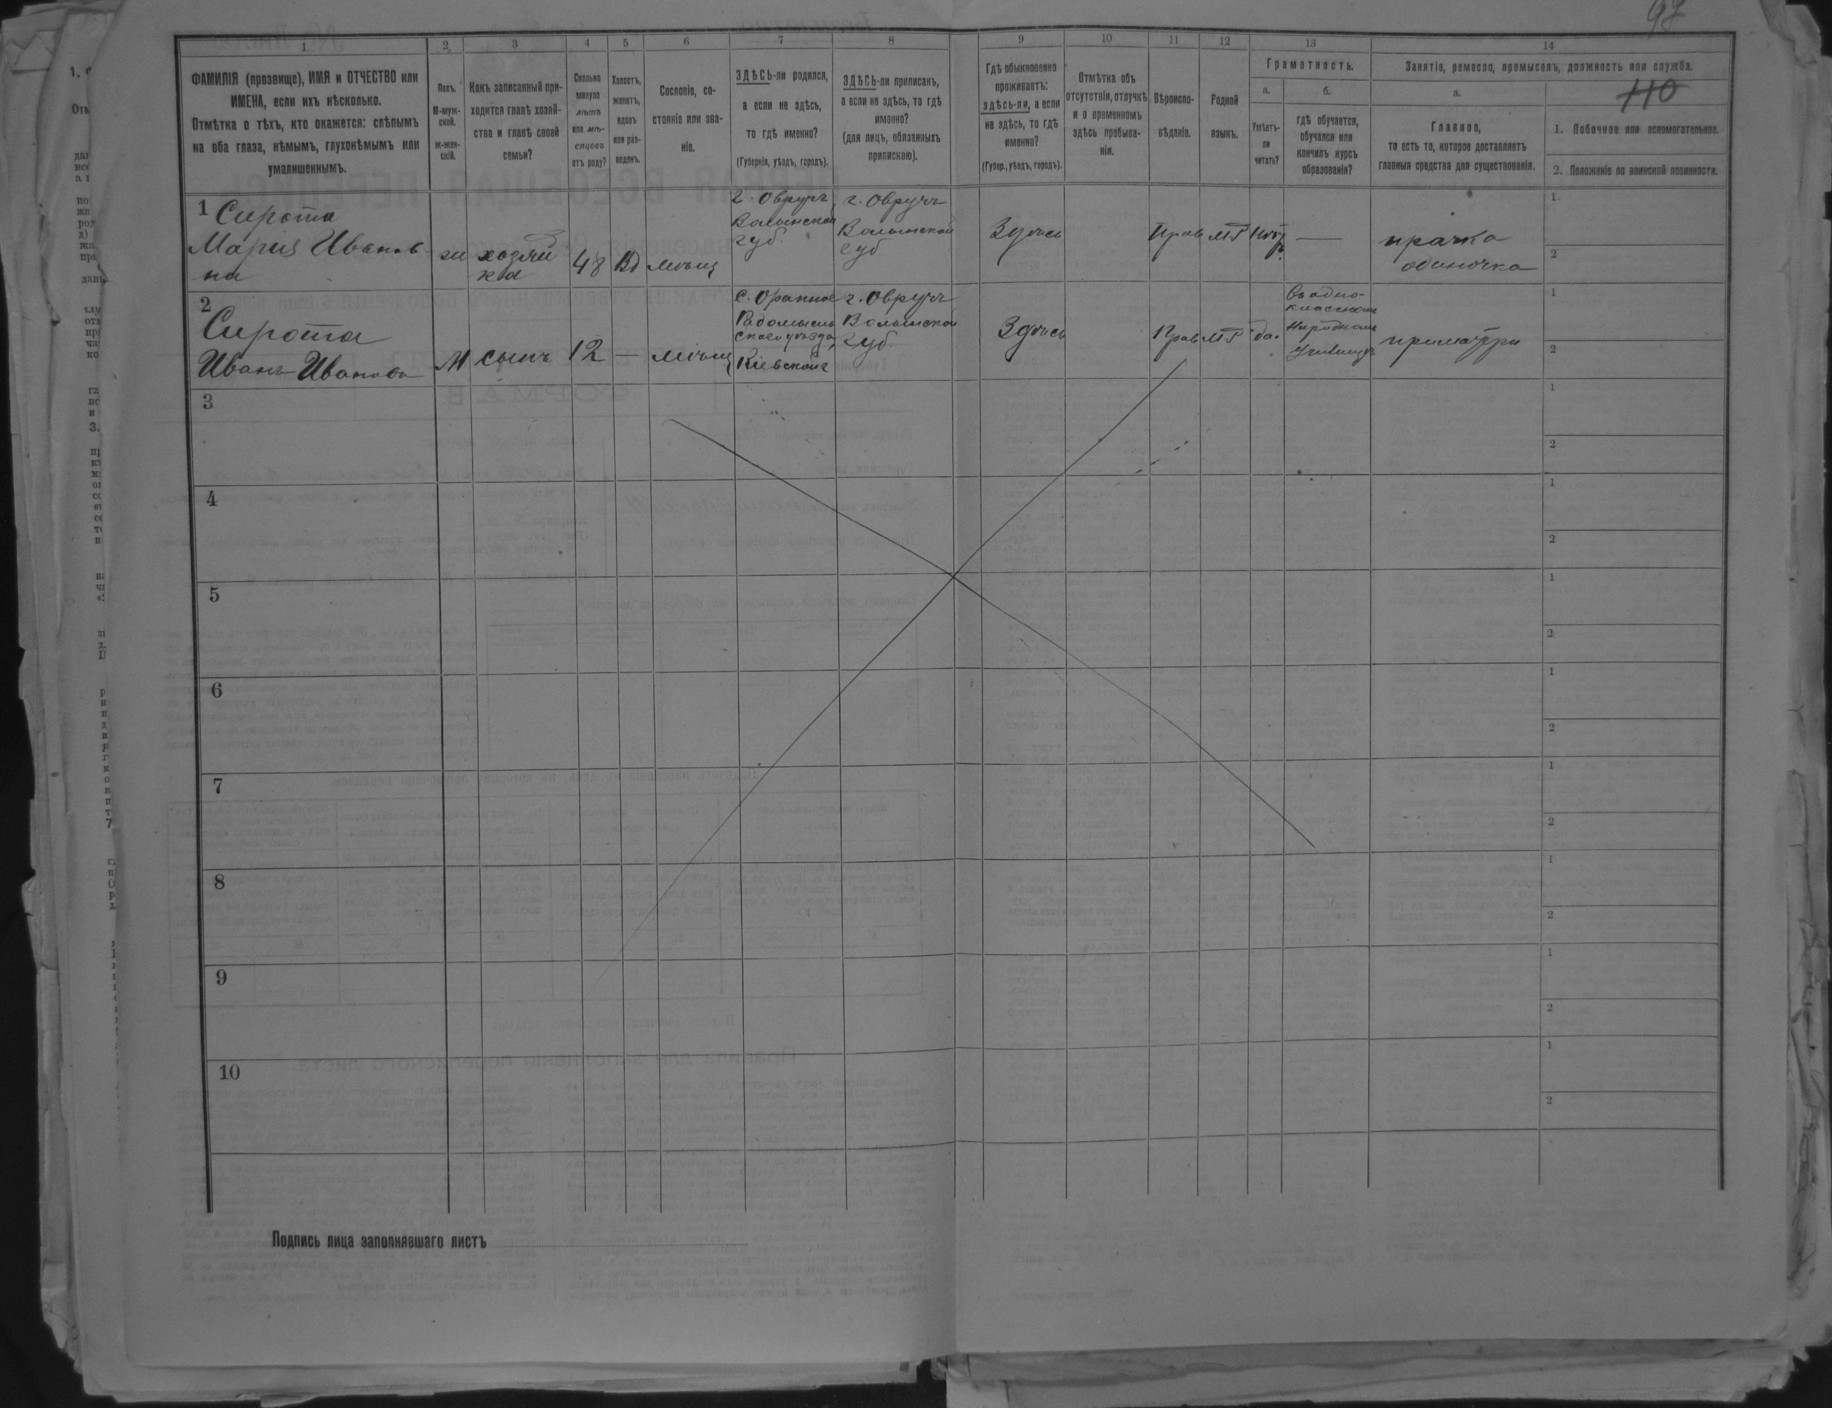 97
110
1
2
3
4
5
6
7
8
9
10
11
12
13
14
ФАМИЛІЯ (прозвище), ИМЯ и ОТЧЕСТВО или
ИМЕНА, если ихъ нѣсколько.
Отмѣтка о тѣхъ, кто окажется: слѣпымъ
на оба глаза, нѣмымъ, глухонѣмымъ или
умалишеннымъ.
Полъ.
М-муж-
ской.
ж-жен-
скій.
Какъ записанный при-
ходится главѣ хозяй-
ства и главѣ своей
семьи?
Сколько
минуло
лѣтъ
или мѣ-
сяцевъ
отъ роду?
Холостъ,
женатъ,
вдовъ
или раз-
веденъ.
Сословіе, со-
стояніе или зва-
ніе.
ЗДѢСЬ-ли родился,
а если не здѣсь,
то гдѣ именно?
(Губернія, уѣздъ, городъ).
ЗДѢСЬ-ли приписанъ,
а если не здѣсь, то гдѣ
именно?
(для лицъ, обязанныхъ
припискою).
Гдѣ обыкновенно
проживаетъ:
здѣсь-ли, а если
не здѣсь, то гдѣ
именно?
(Губер., уѣздъ, городъ).
Отмѣтка объ
отсутствіи, отлучкѣ
и о временномъ
здѣсь пребыва-
ніи.
Вѣроиспо-
вѣданіе.
Родной
языкъ.
Грамотность.
а.
Умѣетъ-
ли
читать?
б.
гдѣ обучается,
обучался или
кончилъ курсъ
образованія?
Занятіе, ремесло, промыселъ, должность или служба.
а.
Главное,
то есть то, которое доставляетъ
главныя средства для существованія.
1. Побочное или вспомогательное.
2. Положеніе по воинской повинности.
1 Сирота
Марія Иванов
на
ж
хозяй
ка
48
Вд
мѣщ
г. Овручъ
Волынской
губ.
г. Овручъ
Волынской
губ
Здѣсь
Прав
МР
нѣтъ
—
прачка
одиночка
1
2
2
Сирота
Иванъ Ивановъ
М
сынъ
12
—
мѣщ
с. Оранное
Радомысль
скаго уѣзда,
Кіевской г
г. Овручъ
Волынской
губ
Здѣсь
Прав
МР
да.
Въ одно-
классномъ
Народномъ
Училищѣ
при матери
1
2
3
1
2
4
1
2
5
1
2
6
1
2
7
1
2
8
1
2
9
1
2
10
1
2
Подпись лица заполнявшаго листъ